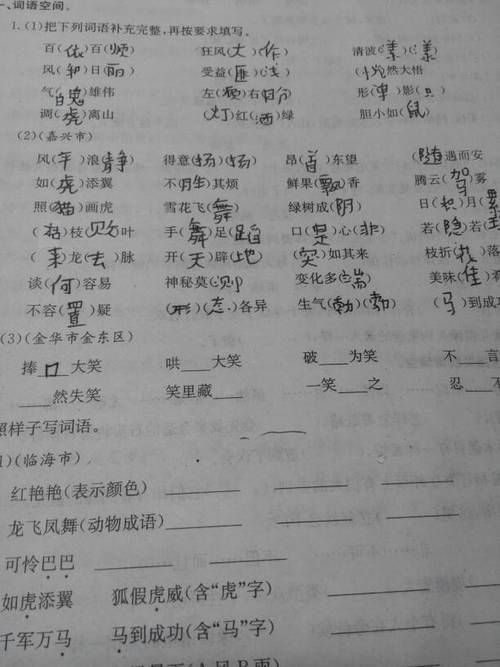 一、词语空间。
1.(1)把下列词语补充完整,再按要求填写。
百(依)百(顺) 狂风(大)(作) 清波(漾)(漾)
风(和)日(丽) 受益(匪)(浅) (恍)然大悟
气(魄)雄伟 左(顾)右(盼) 形(单)影(只)
调(虎)离山 (灯)红(酒)绿 胆小如(鼠)
(2)(嘉兴市)
风(平)浪(静) 得意(扬)(扬) 昂(首)东望 (随)遇而安
如(虎)添翼 不(胜)其烦 鲜果(飘)香 腾云(驾)雾
照(猫)画虎 雪花飞(舞) 绿树成(阴) 日(积)月(累
( )枝( )叶 手(舞)足(蹈) 口(是)心(非) 若(隐)若
(来)龙(去)脉 开(天)辟(地) (突)如其来 枝折( )落
谈(何)容易 神秘莫( ) 变化多(端) 美味(佳)
不容(置)疑 (形)(态)各异 生气(勃)(勃) (马)到成
(3)(金华市金东区)
捧__口__大笑 哄____大笑 破____为笑 不____言
____然失笑 笑里藏____ 一笑____之 忍____不
照样子写词语。
1)(临海市)
红艳艳(表示颜色)
龙飞凤舞(动物成语)
可怜巴巴
如虎添翼 狐假虎威(含“虎”字)
千军万马 马到成功(含“马”字)